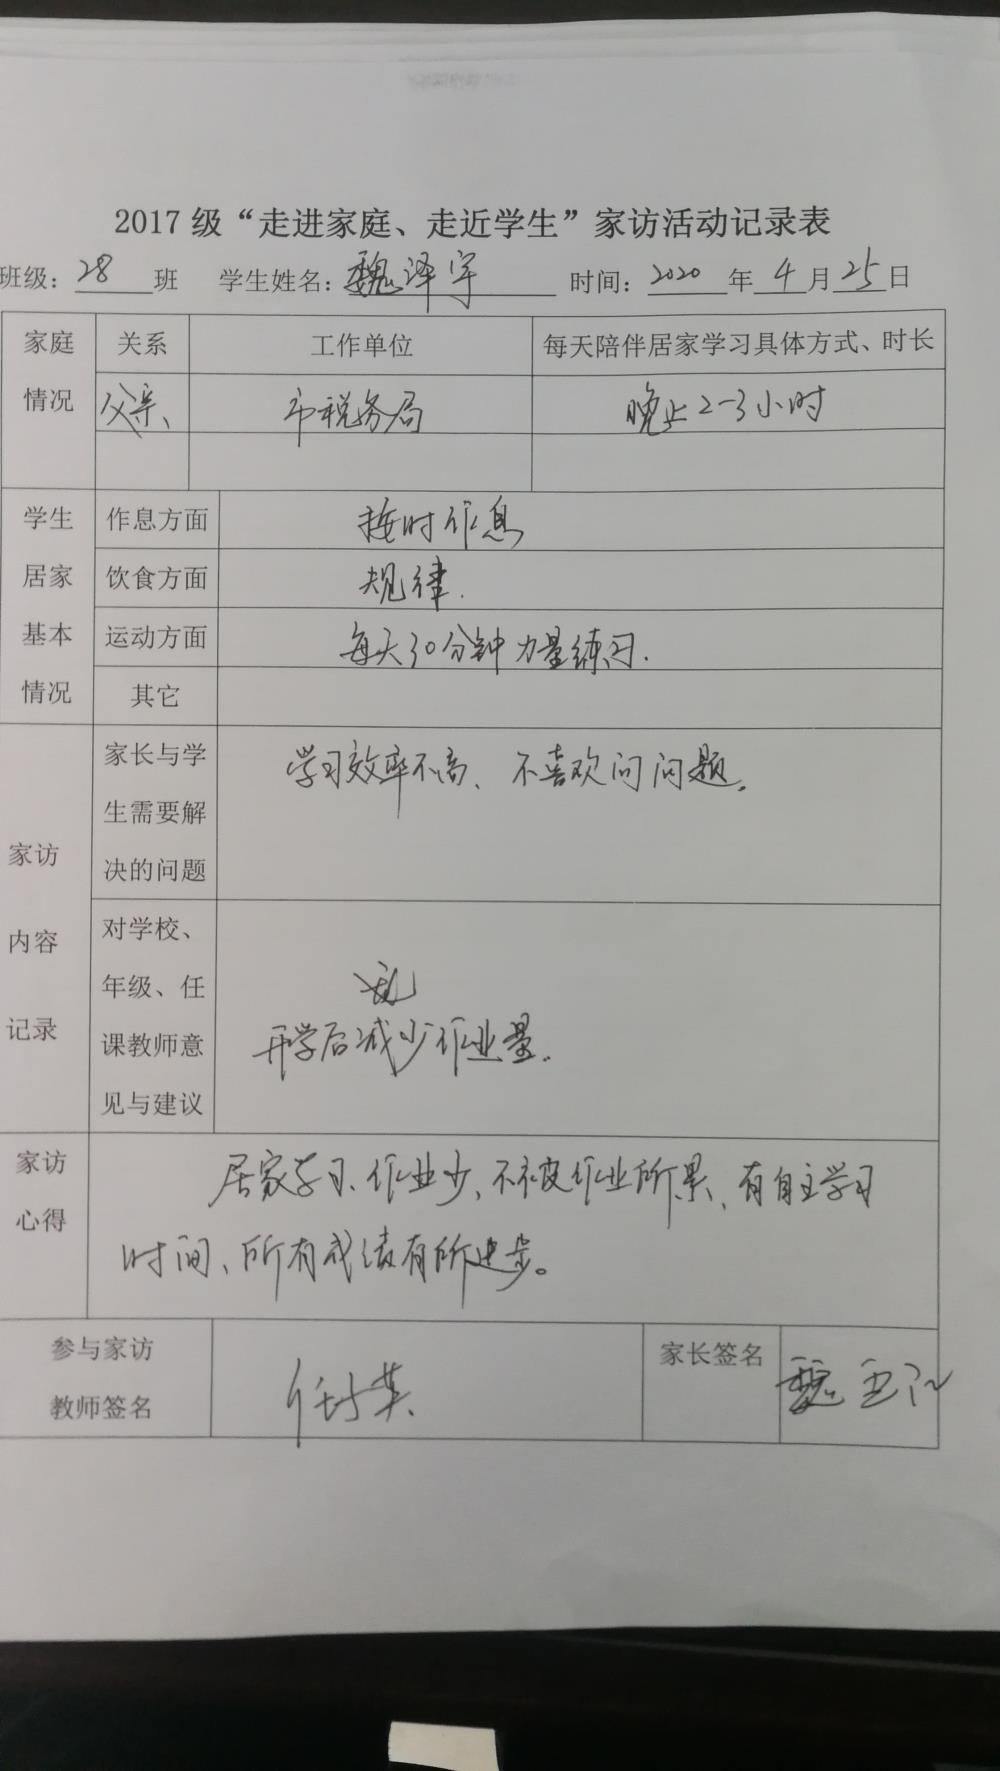 2017 级“走进家庭、走近学生”家访活动记录表
班级：28 班 学生姓名：魏泽宇 时间：2020 年 4 月 25 日
家庭情况 关系 工作单位 每天陪伴居家学习具体方式、时长
父亲、 市税务局 晚上2-3小时
学生居家基本情况
作息方面 按时作息
饮食方面 规律.
运动方面 每天30分钟力量练习.
其它
家访内容记录
家长与学
生需要解
决的问题
学习效率不高、不喜欢问问题。
对学校、
年级、任
课教师意
见与建议
开学后减少作业量.
家访
心得
居家学习、作业少、不被作业所累、有自主学习
时间、所有成绩有所进步。
参与家访
教师签名
家长签名
魏